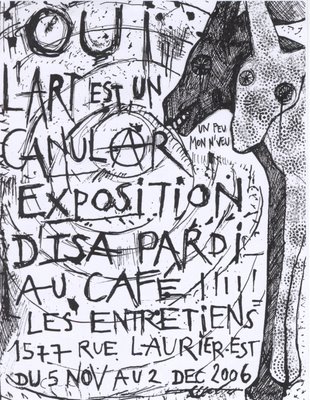 OUI
L'ART EST UN
CANULAR
UN PEU
MON N'VEU
!!!!!!!!
EXPOSITION
D'ISA PARDI
AU CAFE !!!!!
LES ENTRETIENS
1577 RUE LAURIER-EST
DU 5 NOV AU 2 DEC 2006